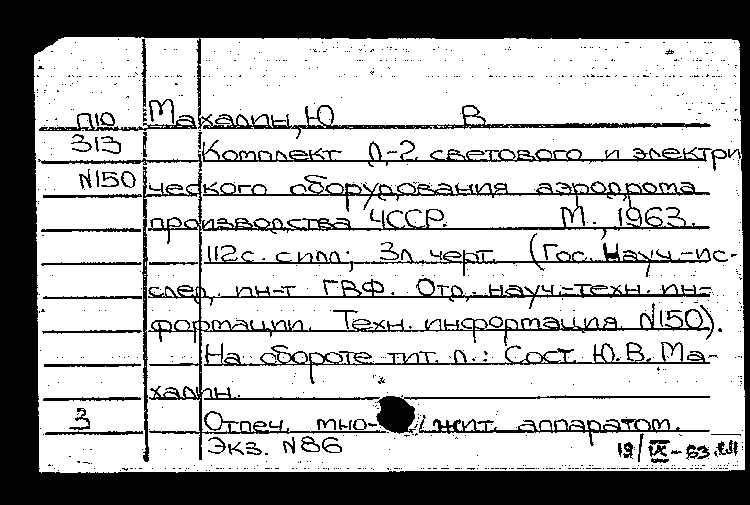 П10 Махалин, Ю В
313 Комплект Л-2 светового и электри
N150 ческого оборудования аэродрома
производства ЧССР. М., 1963.
112с. с илл; 3л. черт. (Гос. Науч.-ис-
след. ин-т ГВФ. Отд. науч.-техн. ин-
формации. Техн. информация N150).
На обороте тит. л.: Сост. Ю.В. Ма-
халин.
3 Отпеч. мно- жит. аппаратом.
Экз. N86
19/IX-63